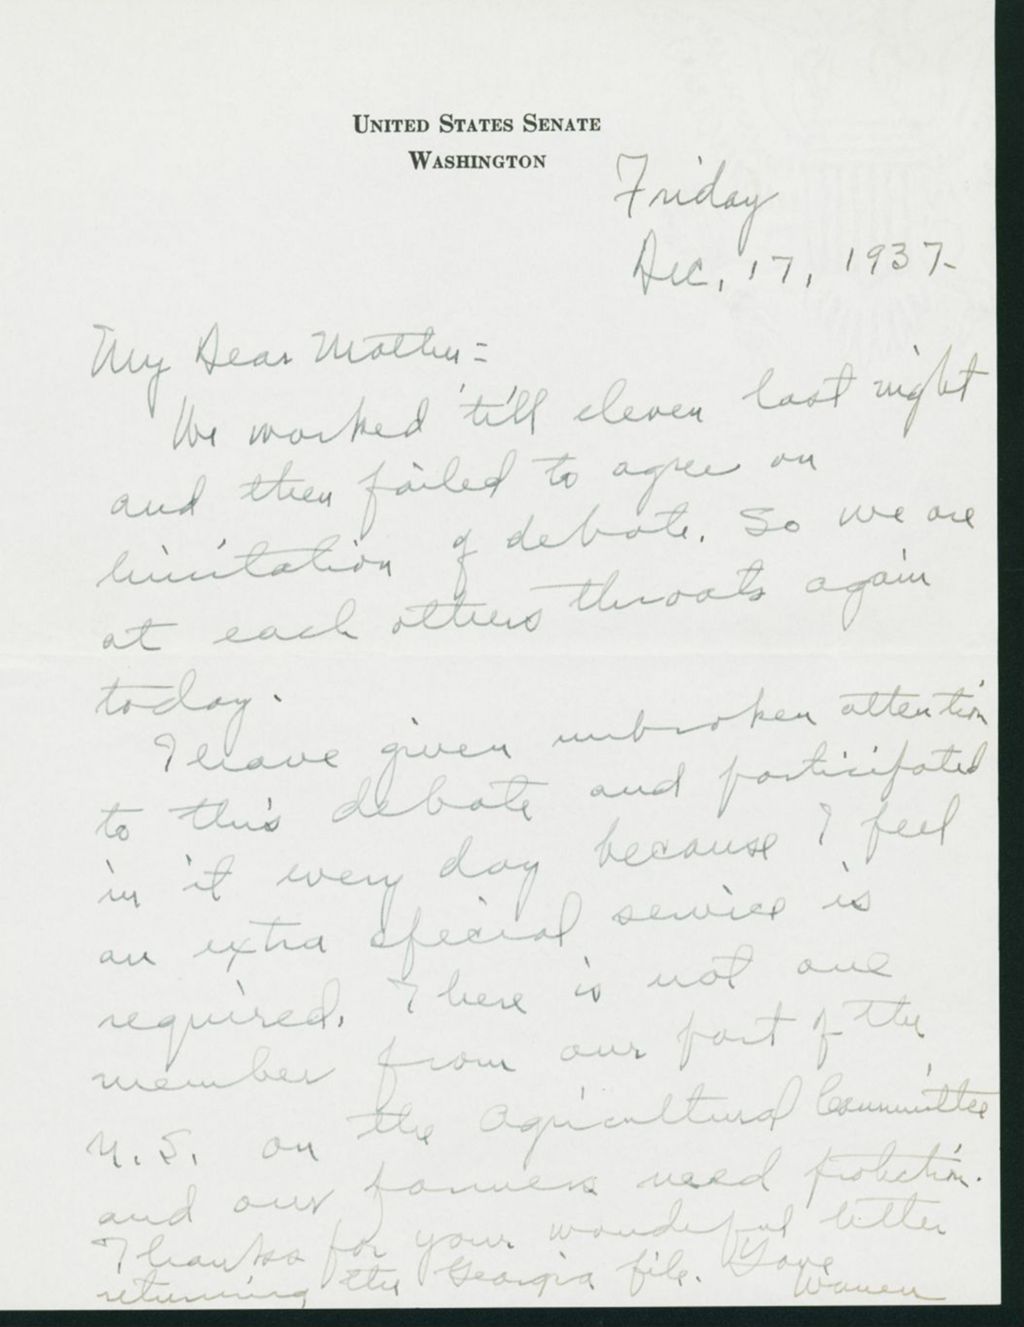 UNITED STATES SENATE
WASHINGTON
Friday
Dec, 17, 1937-
My Dear Mother =
We worked 'till eleven last night
and then failed to agree on
limitation of debate. So we are
at each others throats again
today.
I have given unbroken attention
to this debate and participated
in it every day because I feel
an extra special service is
required. There is not one
member from our part of the
U.S. on the Agricultural Committee
and our farmers need protection.
Thanks for your wonderful letter
returning the Georgia file. Love
Warren